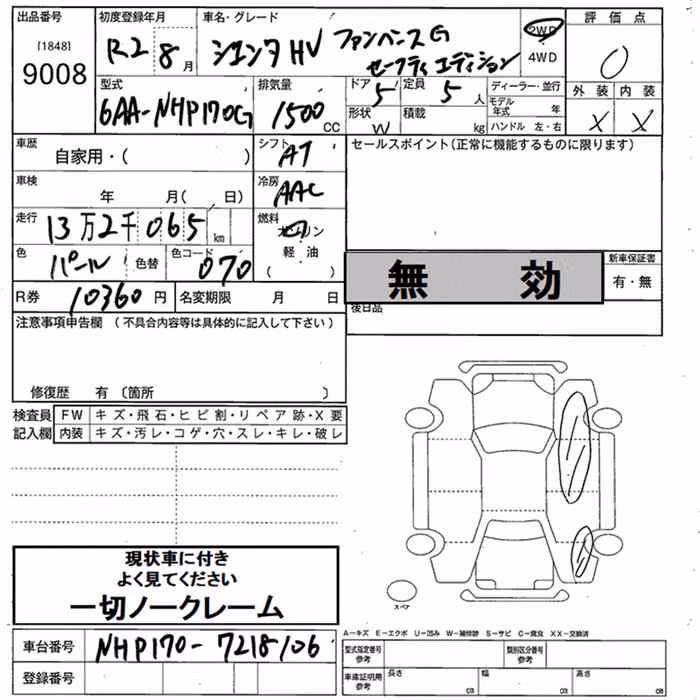 出品番号
[1848]
9008
初度登録年月
R2 8 月
車名・グレード
シエンタHV ファンベースG
セーフティエディション
2WD
4WD
評価点
0
外装 内装
X X
型式
6AA-NHP170G
排気量
1500 CC
ドア 5
定員 5 人
形状 W
積載 kg
ディーラー・並行
モデル年式 年
ハンドル 左・右
車歴
自家用・( )
シフト AT
セールスポイント(正常に機能するものに限ります)
車検
年 月( 日)
冷房 AAC
走行
13万2千065 km
燃料
ガソリン
軽油
( )
色 パール
色替
色コード 070
無効
新車保証書
有・無
R券 10360 円
名変期限 月 日
後日品
注意事項申告欄(不具合内容等は具体的に記入して下さい)
修復歴 有〔箇所 〕
検査員 FW キズ・飛石・ヒビ割・リペア跡・X要
記入欄 内装 キズ・汚レ・コゲ・穴・スレ・キレ・破レ
現状車に付き
よく見てください
一切ノークレーム
スペア
A-キズ E-エクボ U-凹み W-補修跡 S-サビ C-腐食 XX-交換済
車台番号 NHP170-7218106
登録番号
型式指定番号
参考
類別区分番号
参考
車庫証明用
参考
長さ cm
幅 cm
高さ cm